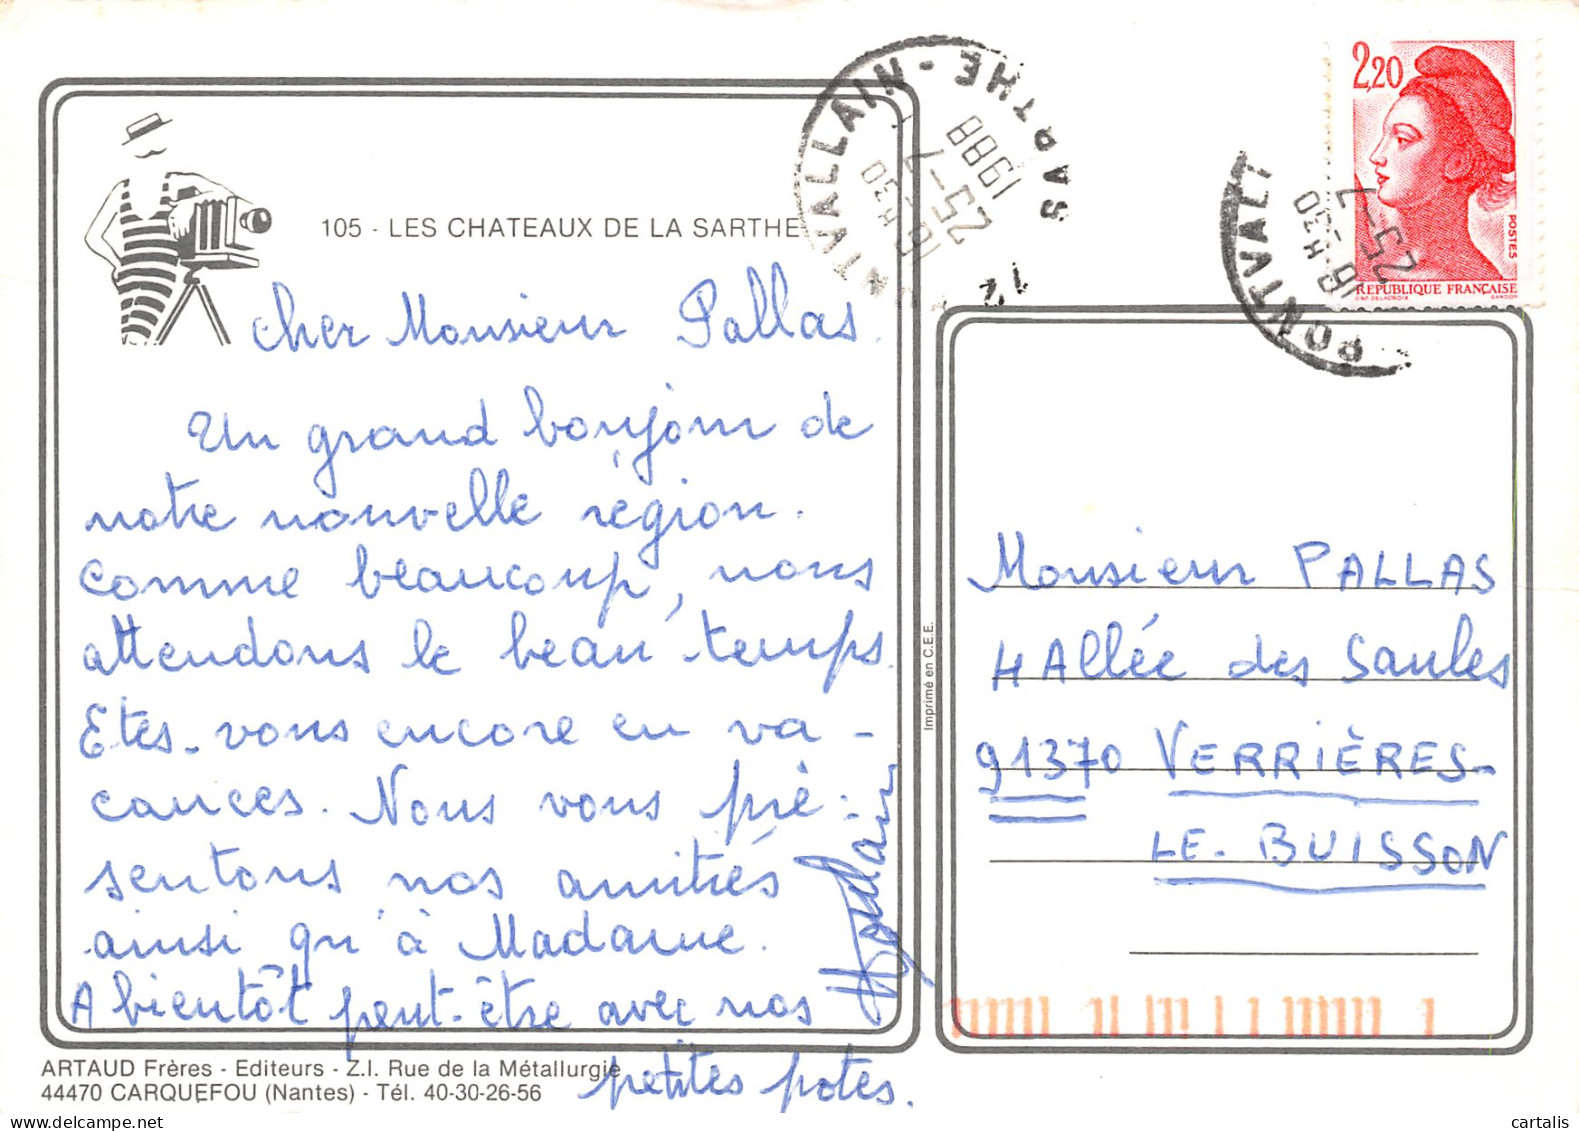 105 - LES CHATEAUX DE LA SARTHE
cher Monsieur Pallas.
Un grand bonjour de
notre nouvelle région.
comme beaucoup, nous
attendons le beau temps.
Etes-vous encore en va-
cances. Nous vous pré-
sentons nos amitiés
ainsi qu'à Madame.
A bientôt peut-être avec nos
petites potes.
ARTAUD Frères - Editeurs - Z.I. Rue de la Métallurgie
44470 CARQUEFOU (Nantes) - Tél. 40-30-26-56
Imprimé en C.E.E.
PONTVALLAIN - SARTHE
18 H 30
25-7
1988
72
2,20
POSTES
RÉPUBLIQUE FRANÇAISE
D'AP. DELACROIX GANDON
PONTVALL
18 H 30
25-7
Monsieur PALLAS
4 Allée des Saules
91370 VERRIÈRES-
LE-BUISSON
cartalis